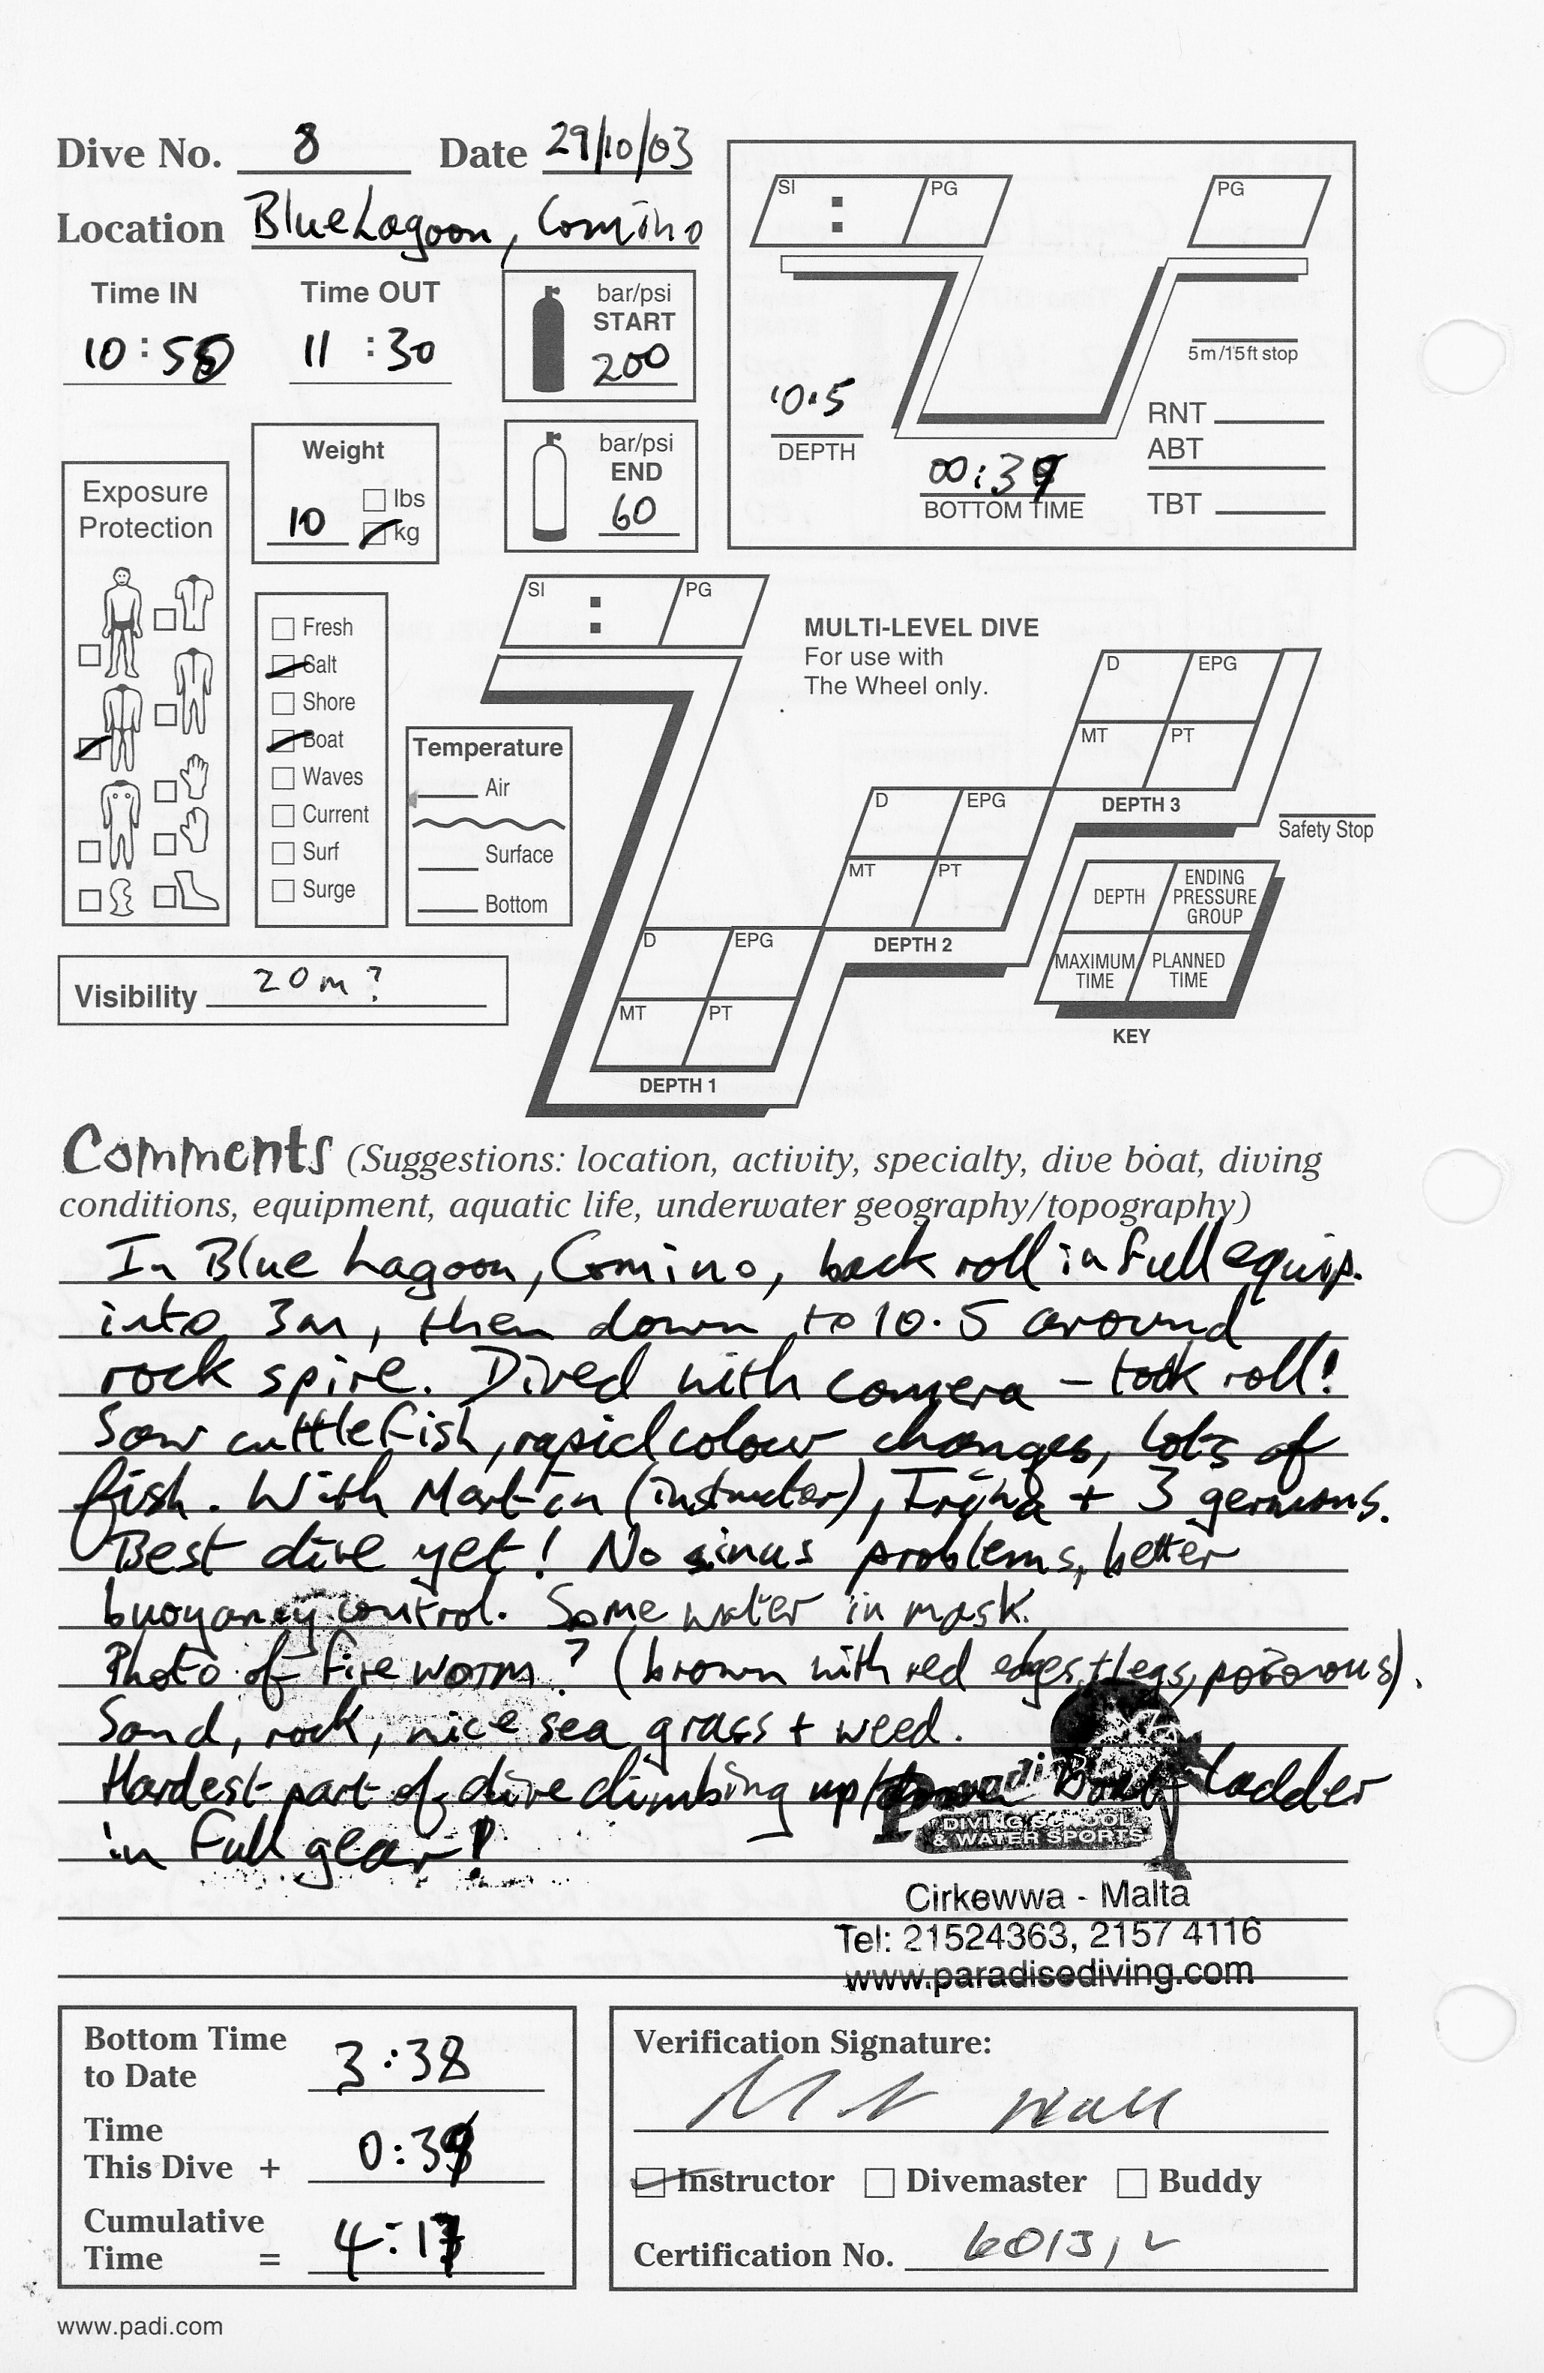 Dive No. 8 Date 29/10/03
Location Blue Lagoon, Comino
Time IN Time OUT
10:50 11:30
bar/psi
START
200
bar/psi
END
60
Weight
10
lbs
kg
Exposure
Protection
Fresh
Salt
Shore
Boat
Waves
Current
Surf
Surge
Temperature
Air
Surface
Bottom
Visibility 20m?
SI : PG
PG
5m/15ft stop
10.5
DEPTH
00:39
BOTTOM TIME
RNT
ABT
TBT
SI : PG
MULTI-LEVEL DIVE
For use with
The Wheel only.
D EPG
MT PT
DEPTH 3
D EPG
MT PT
DEPTH 2
D EPG
MT PT
DEPTH 1
Safety Stop
DEPTH
ENDING
PRESSURE
GROUP
MAXIMUM
TIME
PLANNED
TIME
KEY
Comments (Suggestions: location, activity, specialty, dive boat, diving
conditions, equipment, aquatic life, underwater geography/topography)
In Blue Lagoon, Comino, back roll in full equip.
into 3m, then down to 10.5 around
rock spire. Dived with camera – took roll!
Saw cuttlefish, rapid colour changes, lots of
fish. With Martin (instructor), + 3 germans.
Best dive yet! No sinus problems, better
buoyancy control. Some water in mask.
Photo of fire worm? (brown with red edges + legs, poisonous).
Sand, rock, nice sea grass + weed.
Hardest part of dive climbing up boat ladder
in full gear!
Paradise
DIVING SCHOOL
& WATER SPORTS
Cirkewwa - Malta
Tel: 21524363, 2157 4116
www.paradisediving.com
Bottom Time
to Date 3:38
Time
This Dive + 0:39
Cumulative
Time = 4:17
Verification Signature:
Instructor Divemaster Buddy
Certification No.
www.padi.com